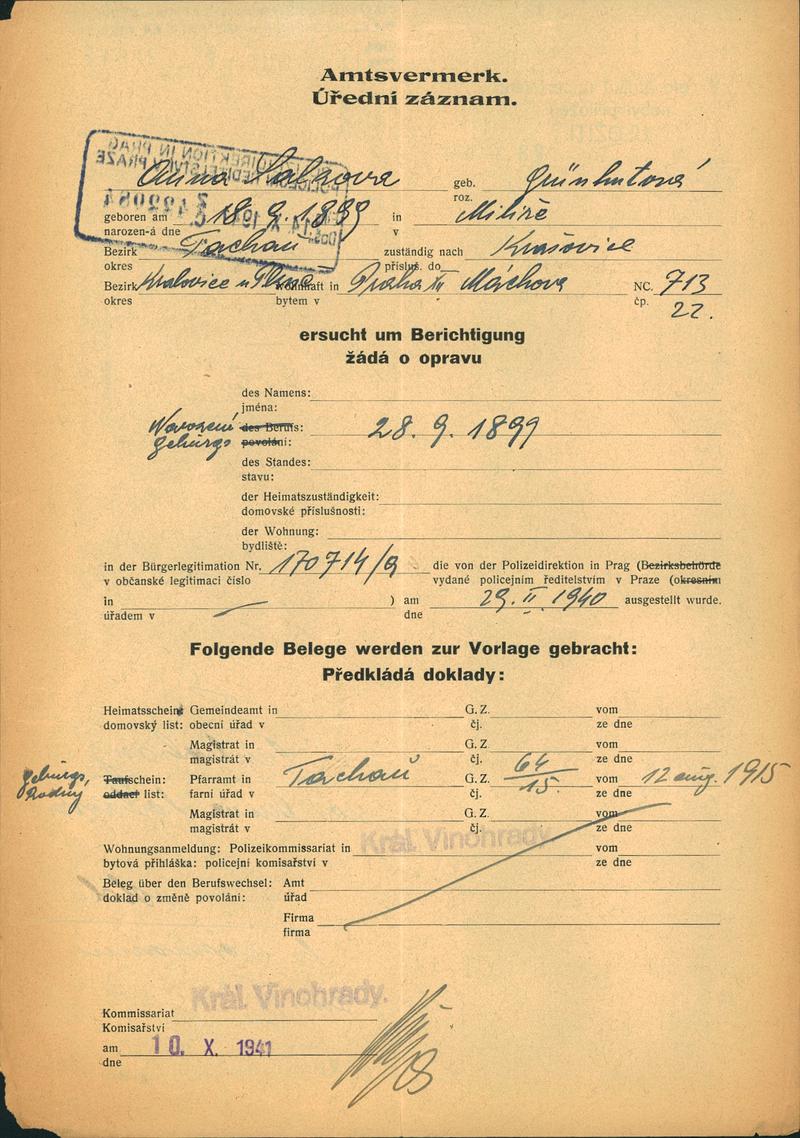 Amtsvermerk.
Úřední záznam.
Anna Salzova geb. roz. Grünhutová
geboren am narozen-á dne 18. 9. 1899 in v Milíře
Bezirk okres Tachau zuständig nach přísluš. do Krašovice
Bezirk okres Kralovice u Plzně wohnhaft in bytem v Praha XII Máchova NC. čp. 713
22.
ersucht um Berichtigung
žádá o opravu
des Namens:
jména:
Narození des Berufs: 28. 9. 1899
geburgs povolání:
des Standes:
stavu:
der Heimatszuständigkeit:
domovské příslušnosti:
der Wohnung:
bydliště:
in der Bürgerlegitimation Nr. 170714/9 die von der Polizeidirektion in Prag (Bezirksbehörde
v občanské legitimaci číslo vydané policejním ředitelstvím v Praze (okresním
in ) am 29. II. 1940 ausgestellt wurde.
úřadem v dne
Folgende Belege werden zur Vorlage gebracht:
Předkládá doklady:
Heimatsschein: Gemeindeamt in G. Z. vom
domovský list: obecní úřad v čj. ze dne
Magistrat in G. Z. vom
magistrát v čj. ze dne
geburgs, Taufschein: Pfarramt in Tachau G. Z. 64/15. vom 12 aug. 1915
rodný oddací list: farní úřad v čj. ze dne
Magistrat in G. Z. vom
magistrát v čj. ze dne
Wohnungsanmeldung: Polizeikommissariat in Král. Vinohrady. vom
bytová přihláška: policejní komisařství v ze dne
Beleg über den Berufswechsel: Amt
doklad o změně povolání: úřad
Firma
firma
Král. Vinohrady.
Kommissariat
Komisařství
am 10. X. 1941
dne